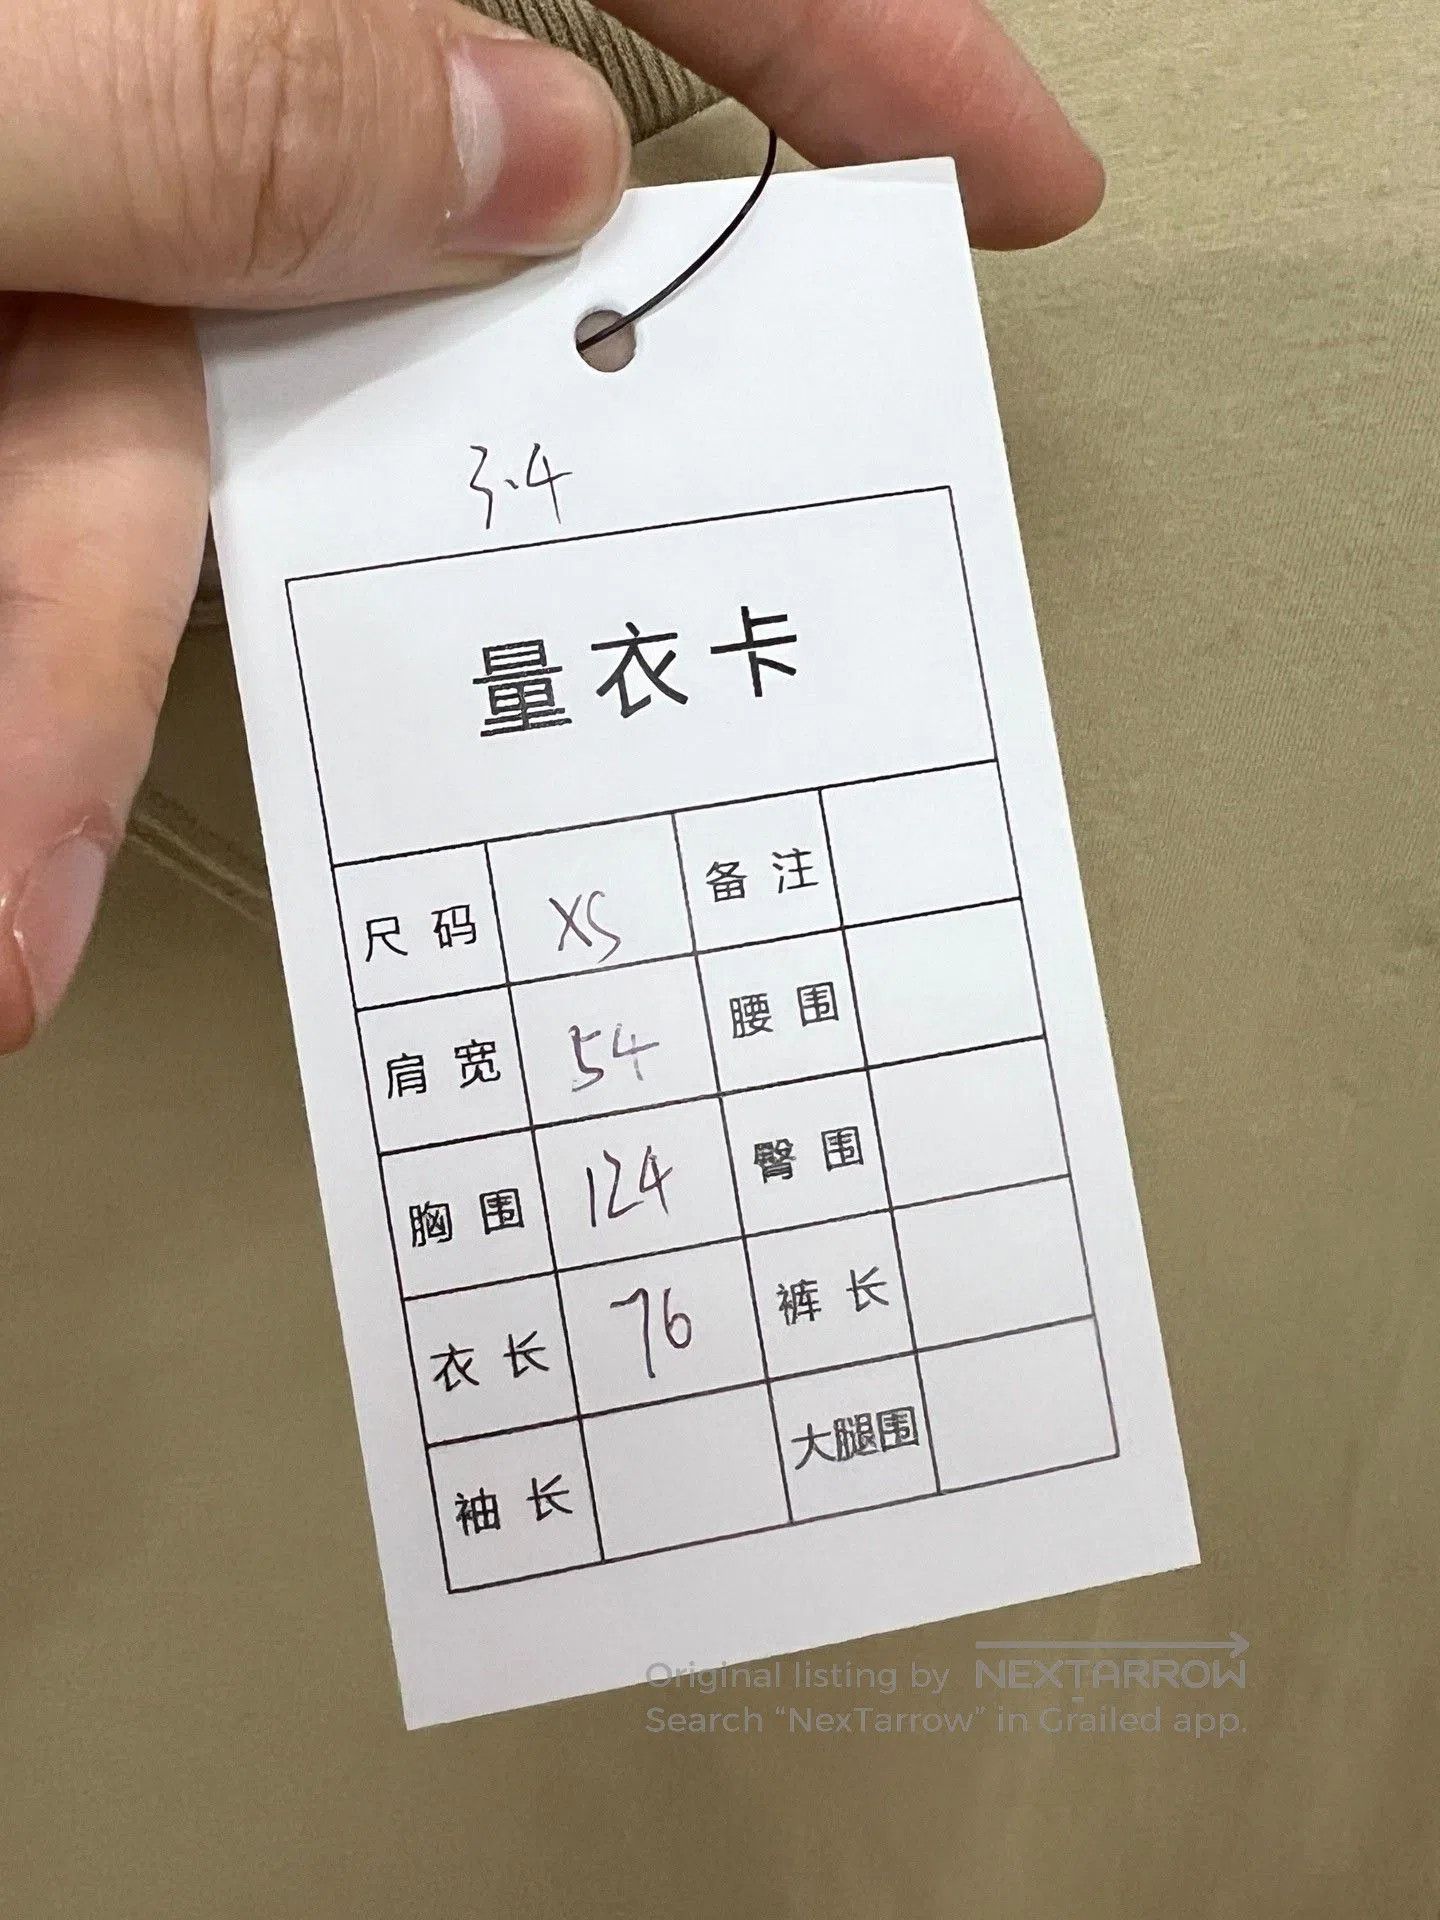 3.4
量衣卡
尺码 XS 备注
肩宽 54 腰围
胸围 124 臀围
衣长 76 裤长
袖长 大腿围
Original listing by NEXTARROW
Search “NexTarrow” in Grailed app.